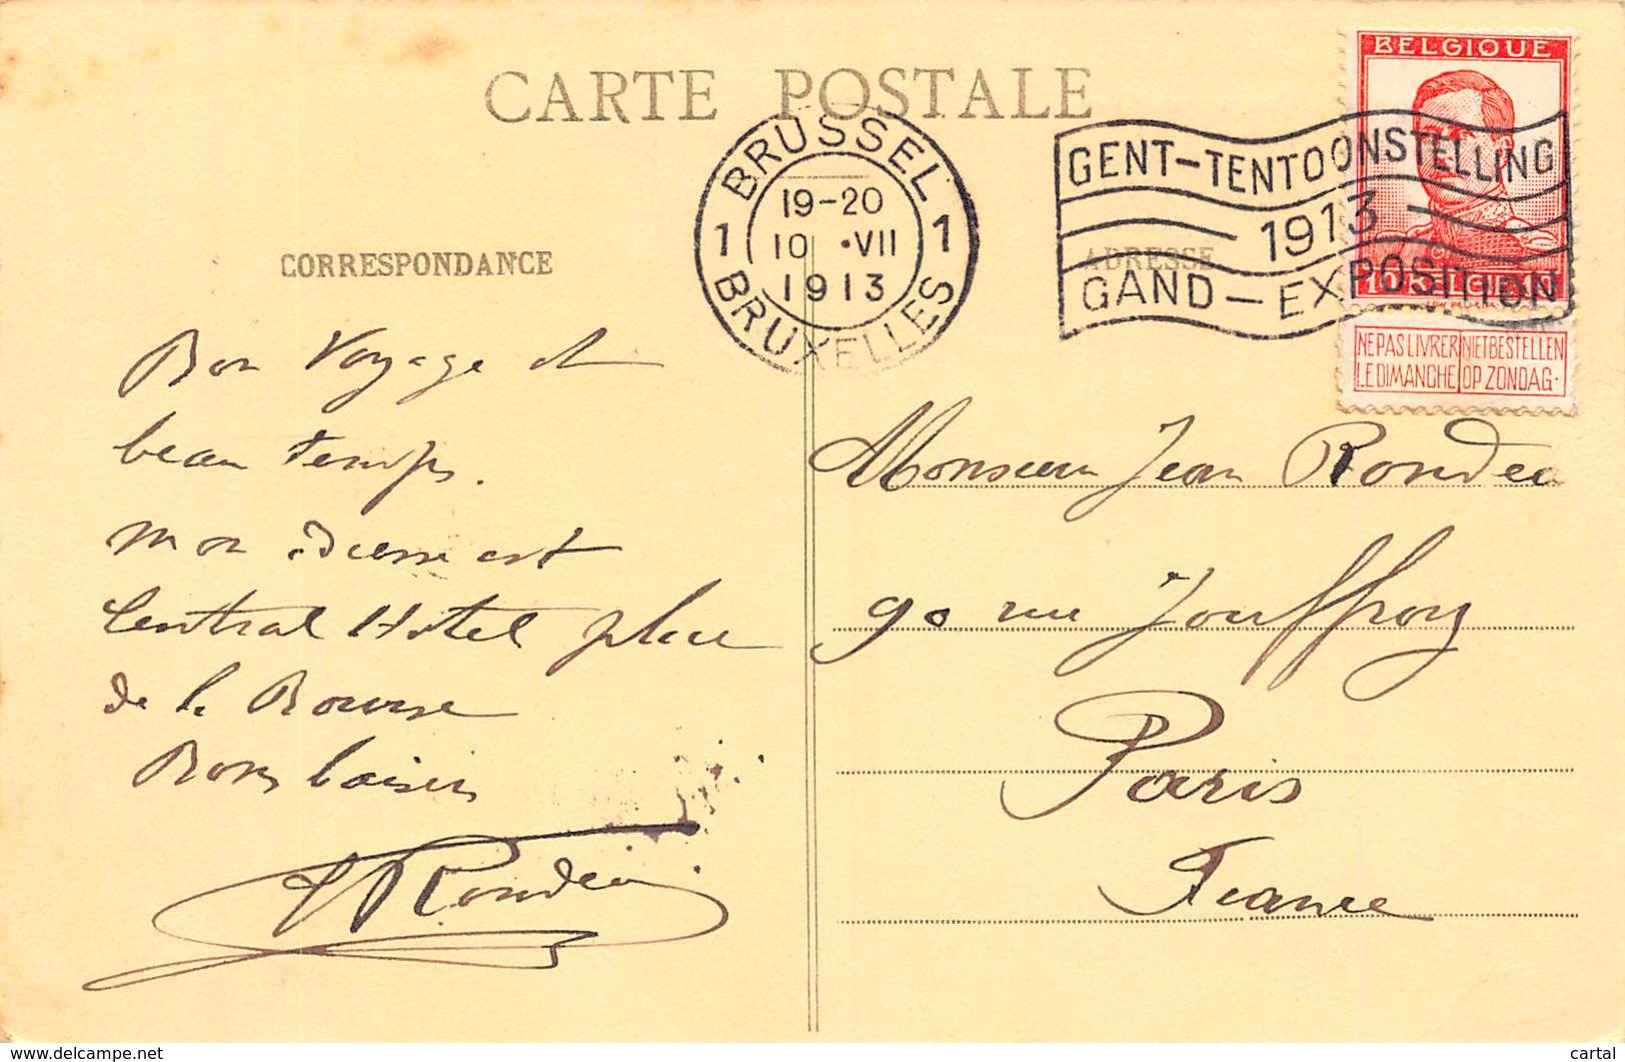 CARTE POSTALE
BELGIQUE
BRUSSEL
1 19-20 1
10 •VII
1913
BRUXELLES
GENT-TENTOONSTELLING
1913
GAND-EXPOSITION
10 BELGIË 10
NE PAS LIVRER NIET BESTELLEN
LE DIMANCHE OP ZONDAG.
CORRESPONDANCE
ADRESSE
Bon Voyage et
beau temps.
mon adresse est
Central Hotel place
de la Bourse
Bons baisers
Rondeau
Monsieur Jean Rondeau
90 rue Jouffroy
Paris
France
www.delcampe.net
cartal